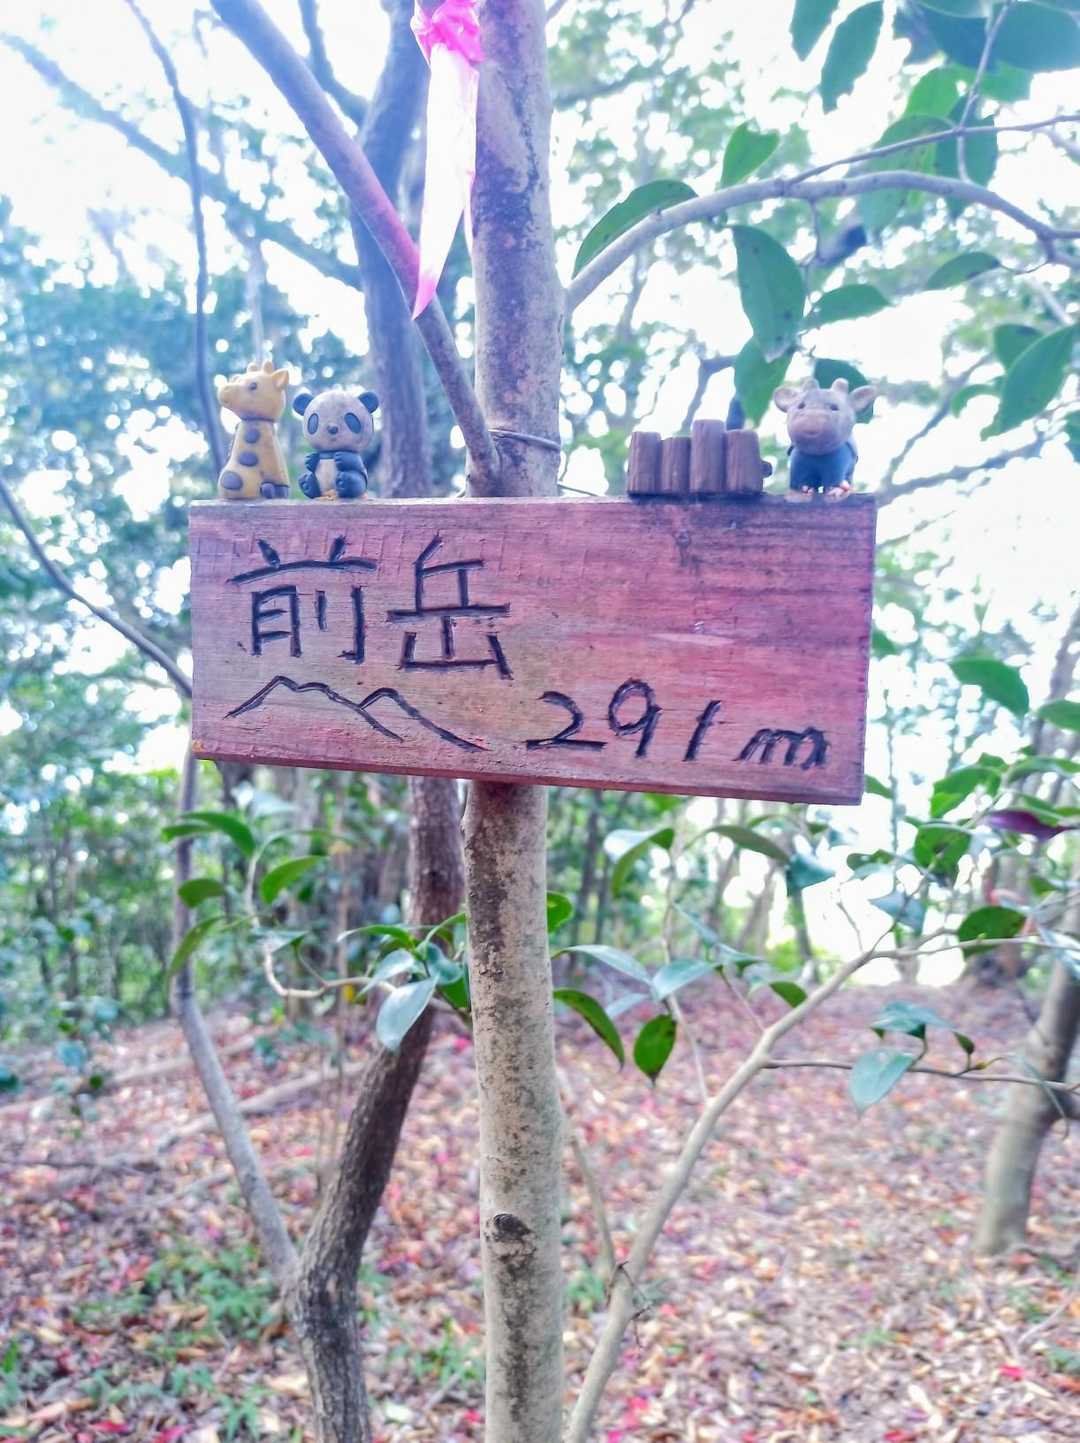 前岳
291m